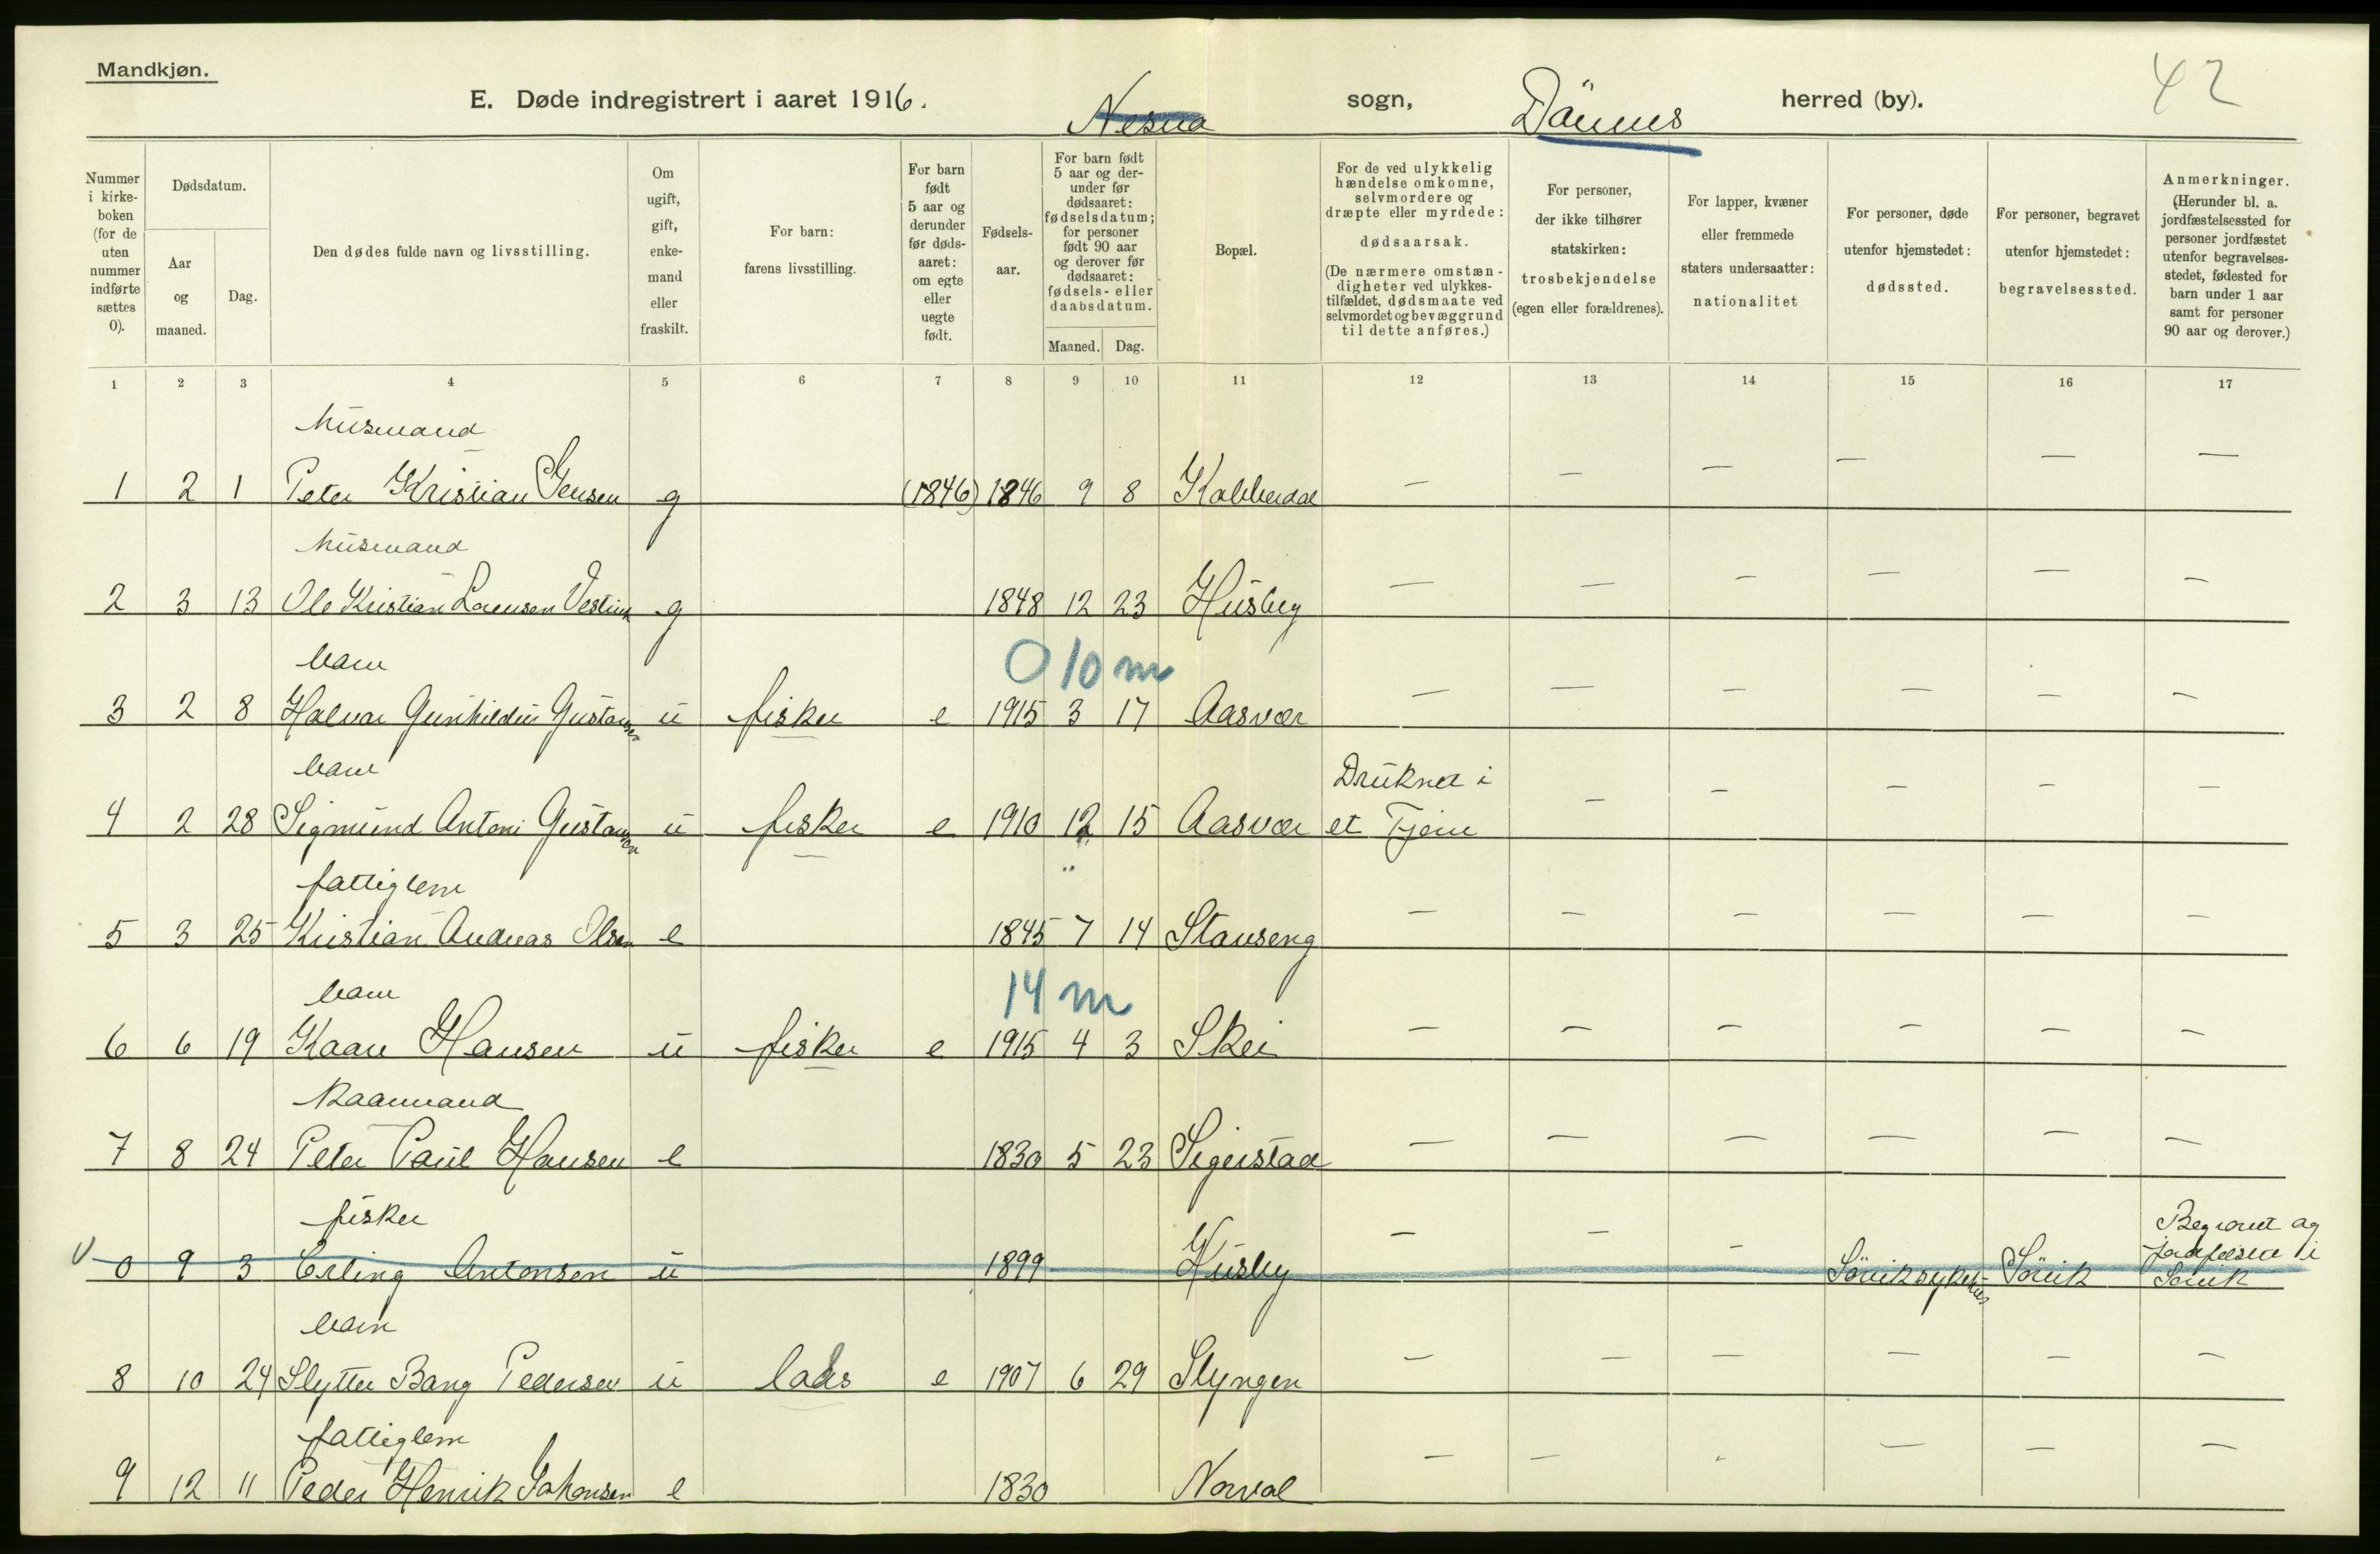 Mandkjøn.
42
E. Døde indregistrert i aaret 1916. Nesna sogn, Dønnes herred (by).
Nummer i kirke-boken (for de uten nummer indførte sættes 0).
Dødsdatum.
Aar og maaned.
Dag.
Den dødes fulde navn og livsstilling.
Om ugift, gift, enke-mand eller fraskilt.
For barn: farens livsstilling.
For barn født 5 aar og derunder før døds-aaret: om egte eller uegte født.
Fødsels-aar.
For barn født 5 aar og der-under før dødsaaret: fødselsdatum; for personer født 90 aar og derover før dødsaaret: fødsels- eller daabsdatum.
Maaned.
Dag.
Bopæl.
For de ved ulykkelig hændelse omkomne, selvmordere og dræpte eller myrdede: dødsaarsak. (De nærmere omstæn-digheter ved ulykkes-tilfældet, dødsmaate ved selvmordet og bevæggrund til dette anføres.)
For personer, der ikke tilhører statskirken: trosbekjendelse (egen eller forældrenes).
For lapper, kvæner eller fremmede staters undersaatter: nationalitet
For personer, døde utenfor hjemstedet: dødssted.
For personer, begravet utenfor hjemstedet: begravelsessted.
Anmerkninger. (Herunder bl. a. jordfæstelsessted for personer jordfæstet utenfor begravelses-stedet, fødested for barn under 1 aar samt for personer 90 aar og derover.)
1 2 3 4 5 6 7 8 9 10 11 12 13 14 15 16 17
husmand
1 2 1 Peter Kristian Jensen g (1846) 1846 9 8 Kobberdal — — — — — —
husmand
2 3 13 Ole Kristian Larensen g 1848 12 23 Husby — — — — — —
barn 0 10 m
3 2 8 Halvar Gunhildus Gustavsen u fisker e 1915 3 17 Aasvær — — — — — —
barn Druknet i
4 2 28 Sigmund Antoni Gustavsen u fisker e 1910 12 15 Aasvær et Tjern — — — — —
fattiglem
5 3 25 Kristian Andreas Olsen e 1845 7 14 Stavseng — — — — — —
barn 14 m
6 6 19 Kaare Hansen u fisker e 1915 4 3 Skei — — — — — —
Kaarmand
7 8 24 Peter Paul Hansen e 1830 5 23 Sigerstad — — — — — —
fisker Begravet og
jordfæstet i
0 9 3 Erling Antonsen u 1899 Husby — — — Søviksykehus Søvik Søvik
barn
8 10 24 Slytter Bang Pedersen u lods e 1907 6 29 Slyngen — — — — — —
fattiglem
9 12 11 Peder Henrik Johansen e 1830 Norval — — — — —